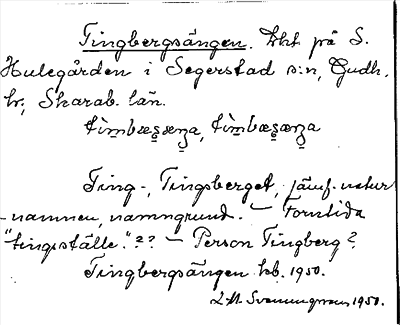 Tingbergsängen. Lht på S.
Hulegården i Segerstad s:n, Gudh.
hr., Skarab. län.
Ting-, Tingsberget, jämf. natur
-namnen, namngrund. – Forntida
"tingsställe."?? – Person Tingberg?
Tingbergsängen kb. 1950.
1950.